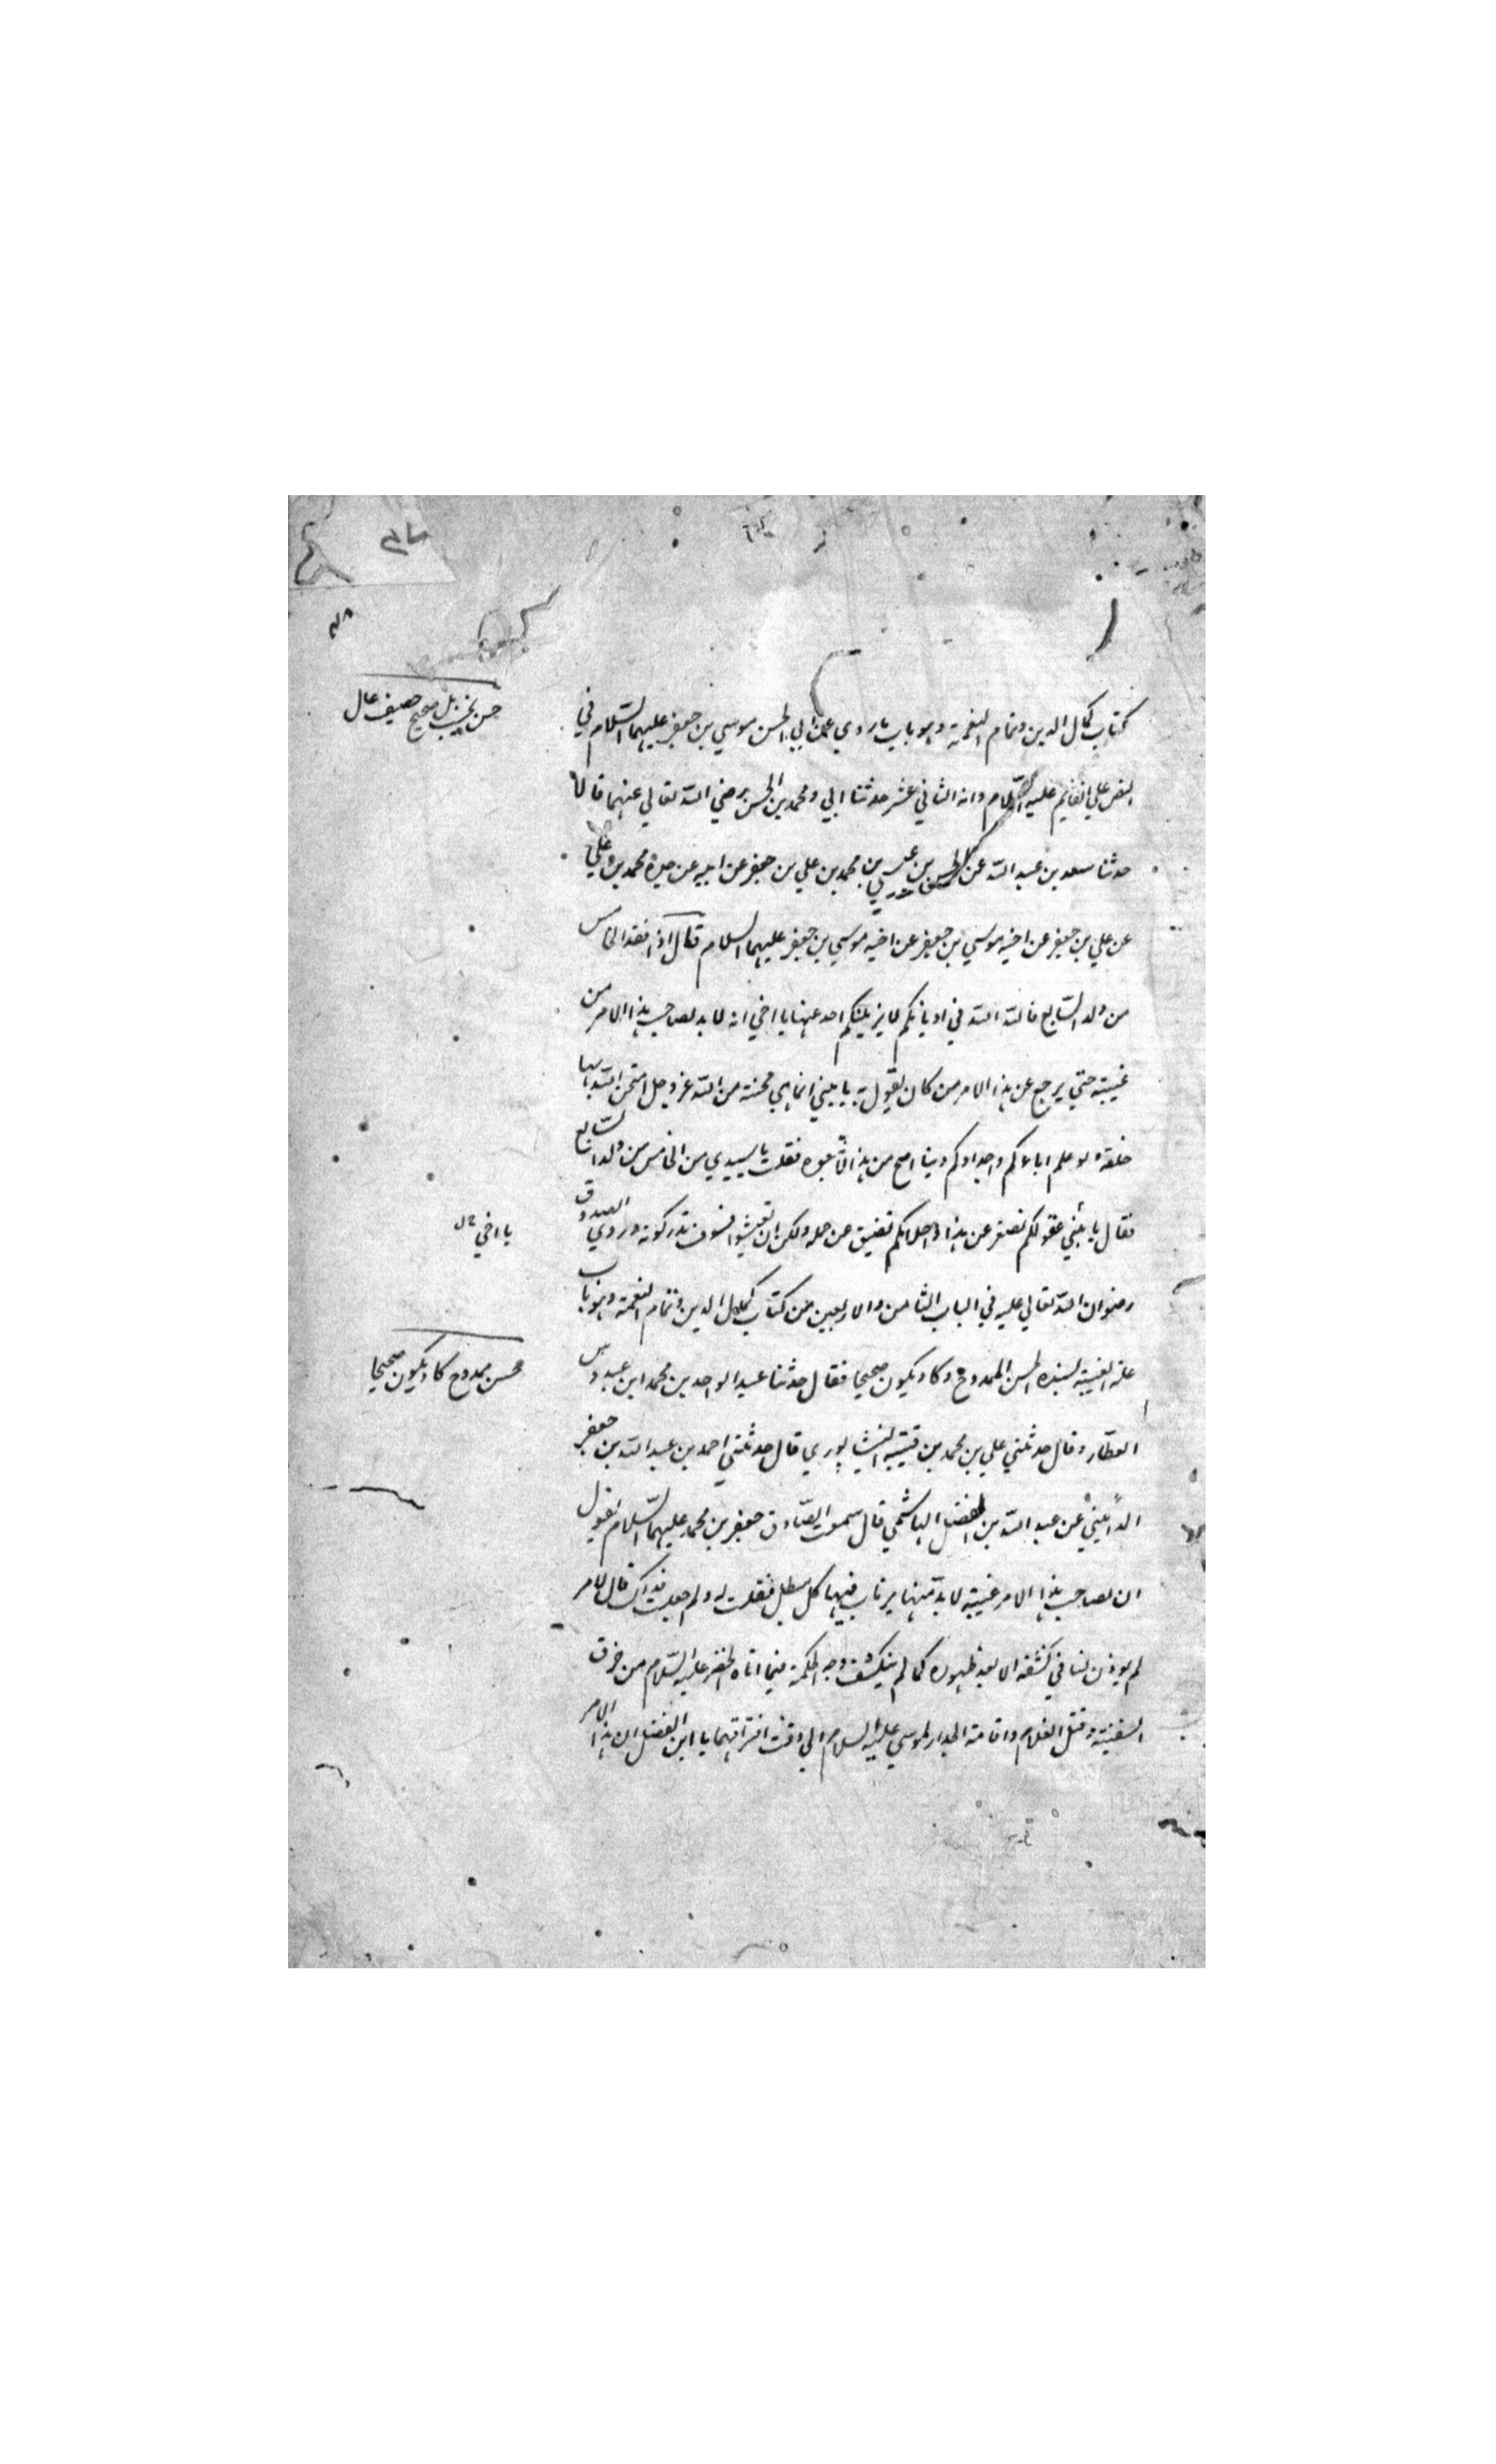 كتاب كمال الدين وتمام النعمة وهو باب ما روي عن ابي الحسن موسي بن جعفر عليهما السّلام في
النص علي القايم عليه السّلام وانه الثاني عشر حدثنا ابي ومحمد بن الحسن رضي اللّه تعالي عنهما قالا
حدثنا سعد بن عبد اللّه عن الحسن بن عيسي بن محمد بن علي بن جعفر عن ابيه عن جده محمد بن علي
عن علي بن جعفر عن اخيه موسي بن جعفر عن اخيه موسي بن جعفر عليهما السلام قال اذا فقد الخامس
من ولد السّابع فاللّه اللّه في اديانكم لا يزيلنكم احد عنها يا اخي انه لا بد لصاحب هذا الامر من
غيبته حتي يرجع عن هذا الامر من كان يقول به يا بني انما هي محنة من اللّه عز وجل امتحن اللّه بها
خلقه ولو علم اباءكم واجدادكم دينا اصح من هذا لاتّبعوه فقلت يا سيدي من الخامس من ولد السّابع
فقال يا بني عقولكم تصغر عن هذا واحلامكم تضيق عن حمله ولكن ان تعيشوا فسوف تدركونه وروي الصدوق
رضوان اللّه تعالي عليه في الباب الثامن والاربعين من كتاب كمال الدين وتمام النعمة وهو باب
علة الغيبة بسنده الحسن الممدوح وكاد يكون صحيحا فقال حدثنا عبد الواحد بن محمد ابن عبدوس
العطّار وقال حدثني علي بن محمد بن قتيبه النيشابوري قال حدثني احمد بن عبد اللّه بن جعفر
المدايني عن عبد اللّه بن الفضل الهاشمي قال سمعت الصّادق جعفر بن محمد عليهما السّلام يقول
ان لصاحب هذا الامر غيبته لا بدّ منها يرتاب فيها كل مبطل فقلت له ولم جعلت فداك قال لامر
لم يوذن لنا في كشفه الا بعد ظهوره كما لم ينكشف وجه الحكمة فيما اتاه الخضر عليه السّلام من خرق
السفينة وقتل الغلام واقامة الجدار لموسي عليه السلام الي وقت افتراقهما يا ابن الفضل ان هذا الامر
يا اخي
حسن ممدوح كاد يكون صحيحا